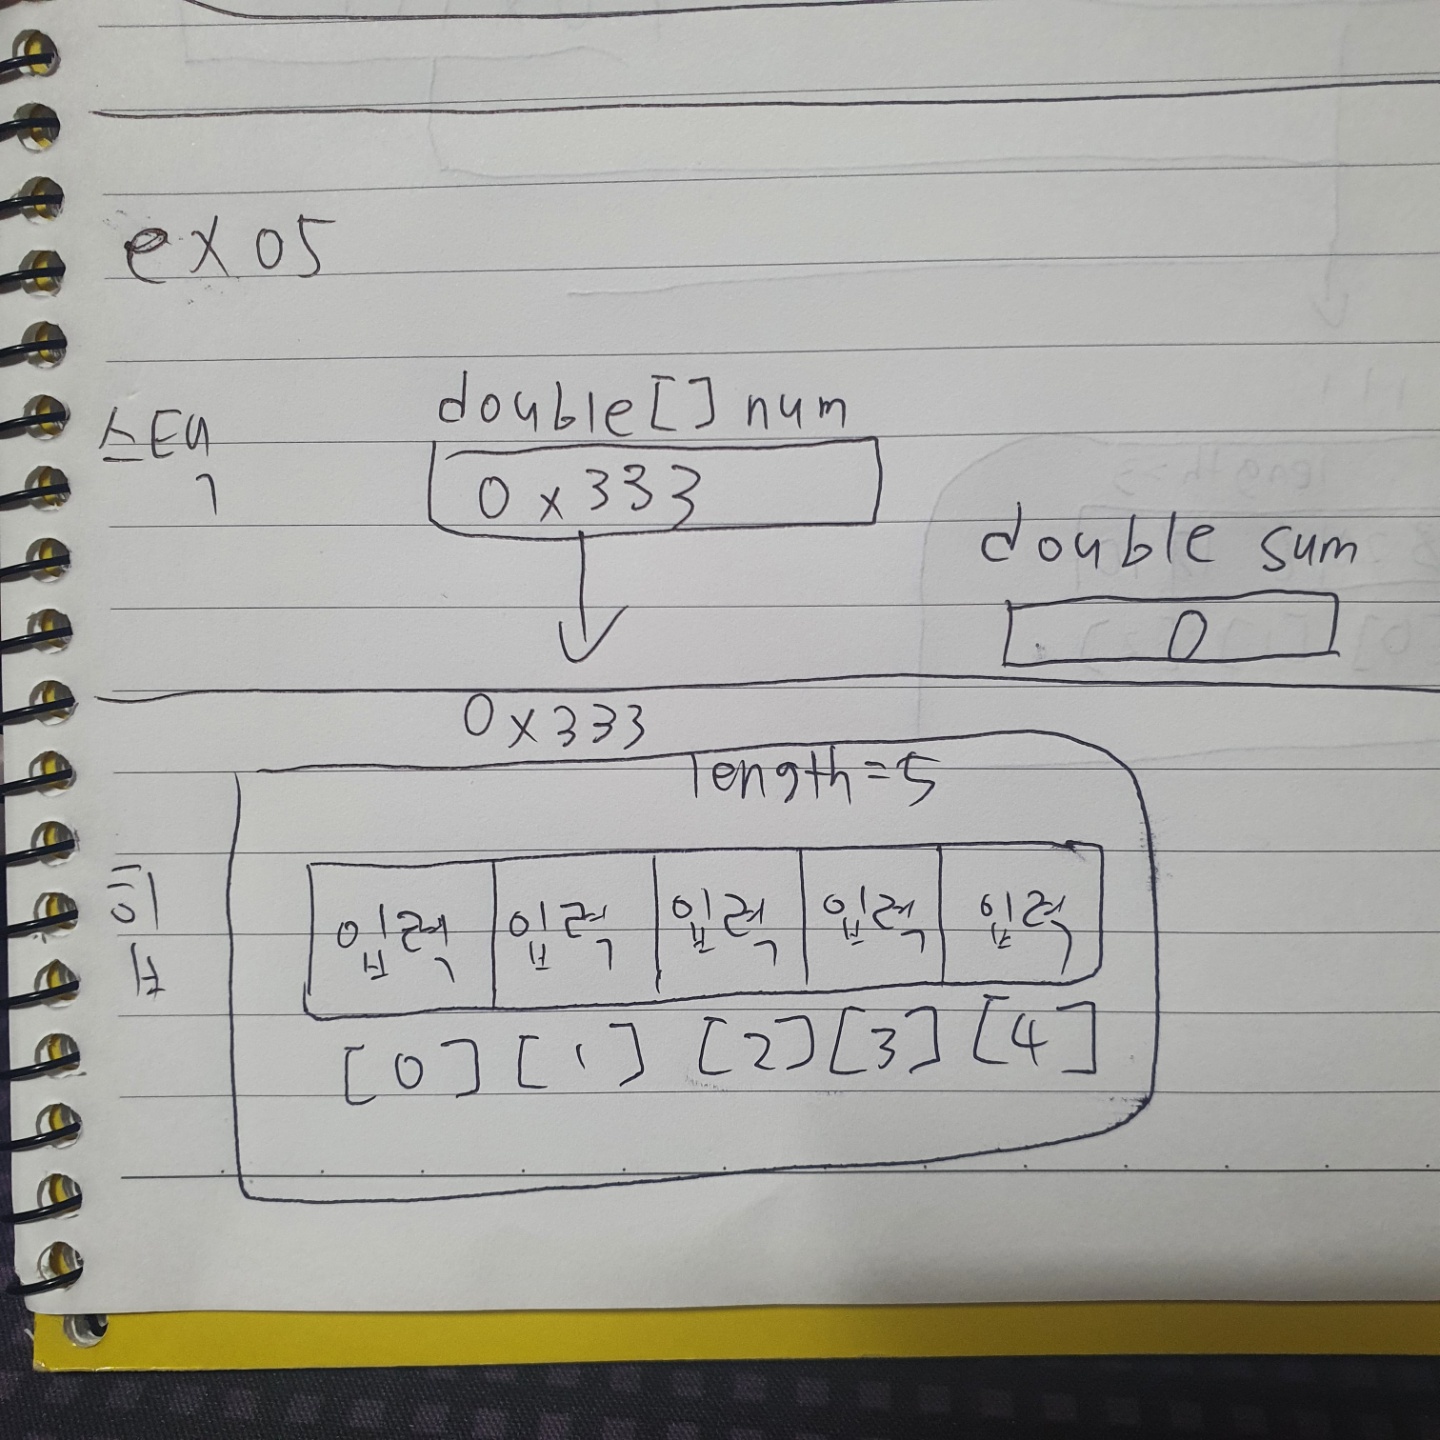 ex05
스택
double[] num
0x333
double sum
0
0x333
length=5
힙
입력 입력 입력 입력 입력
[0] [1] [2] [3] [4]